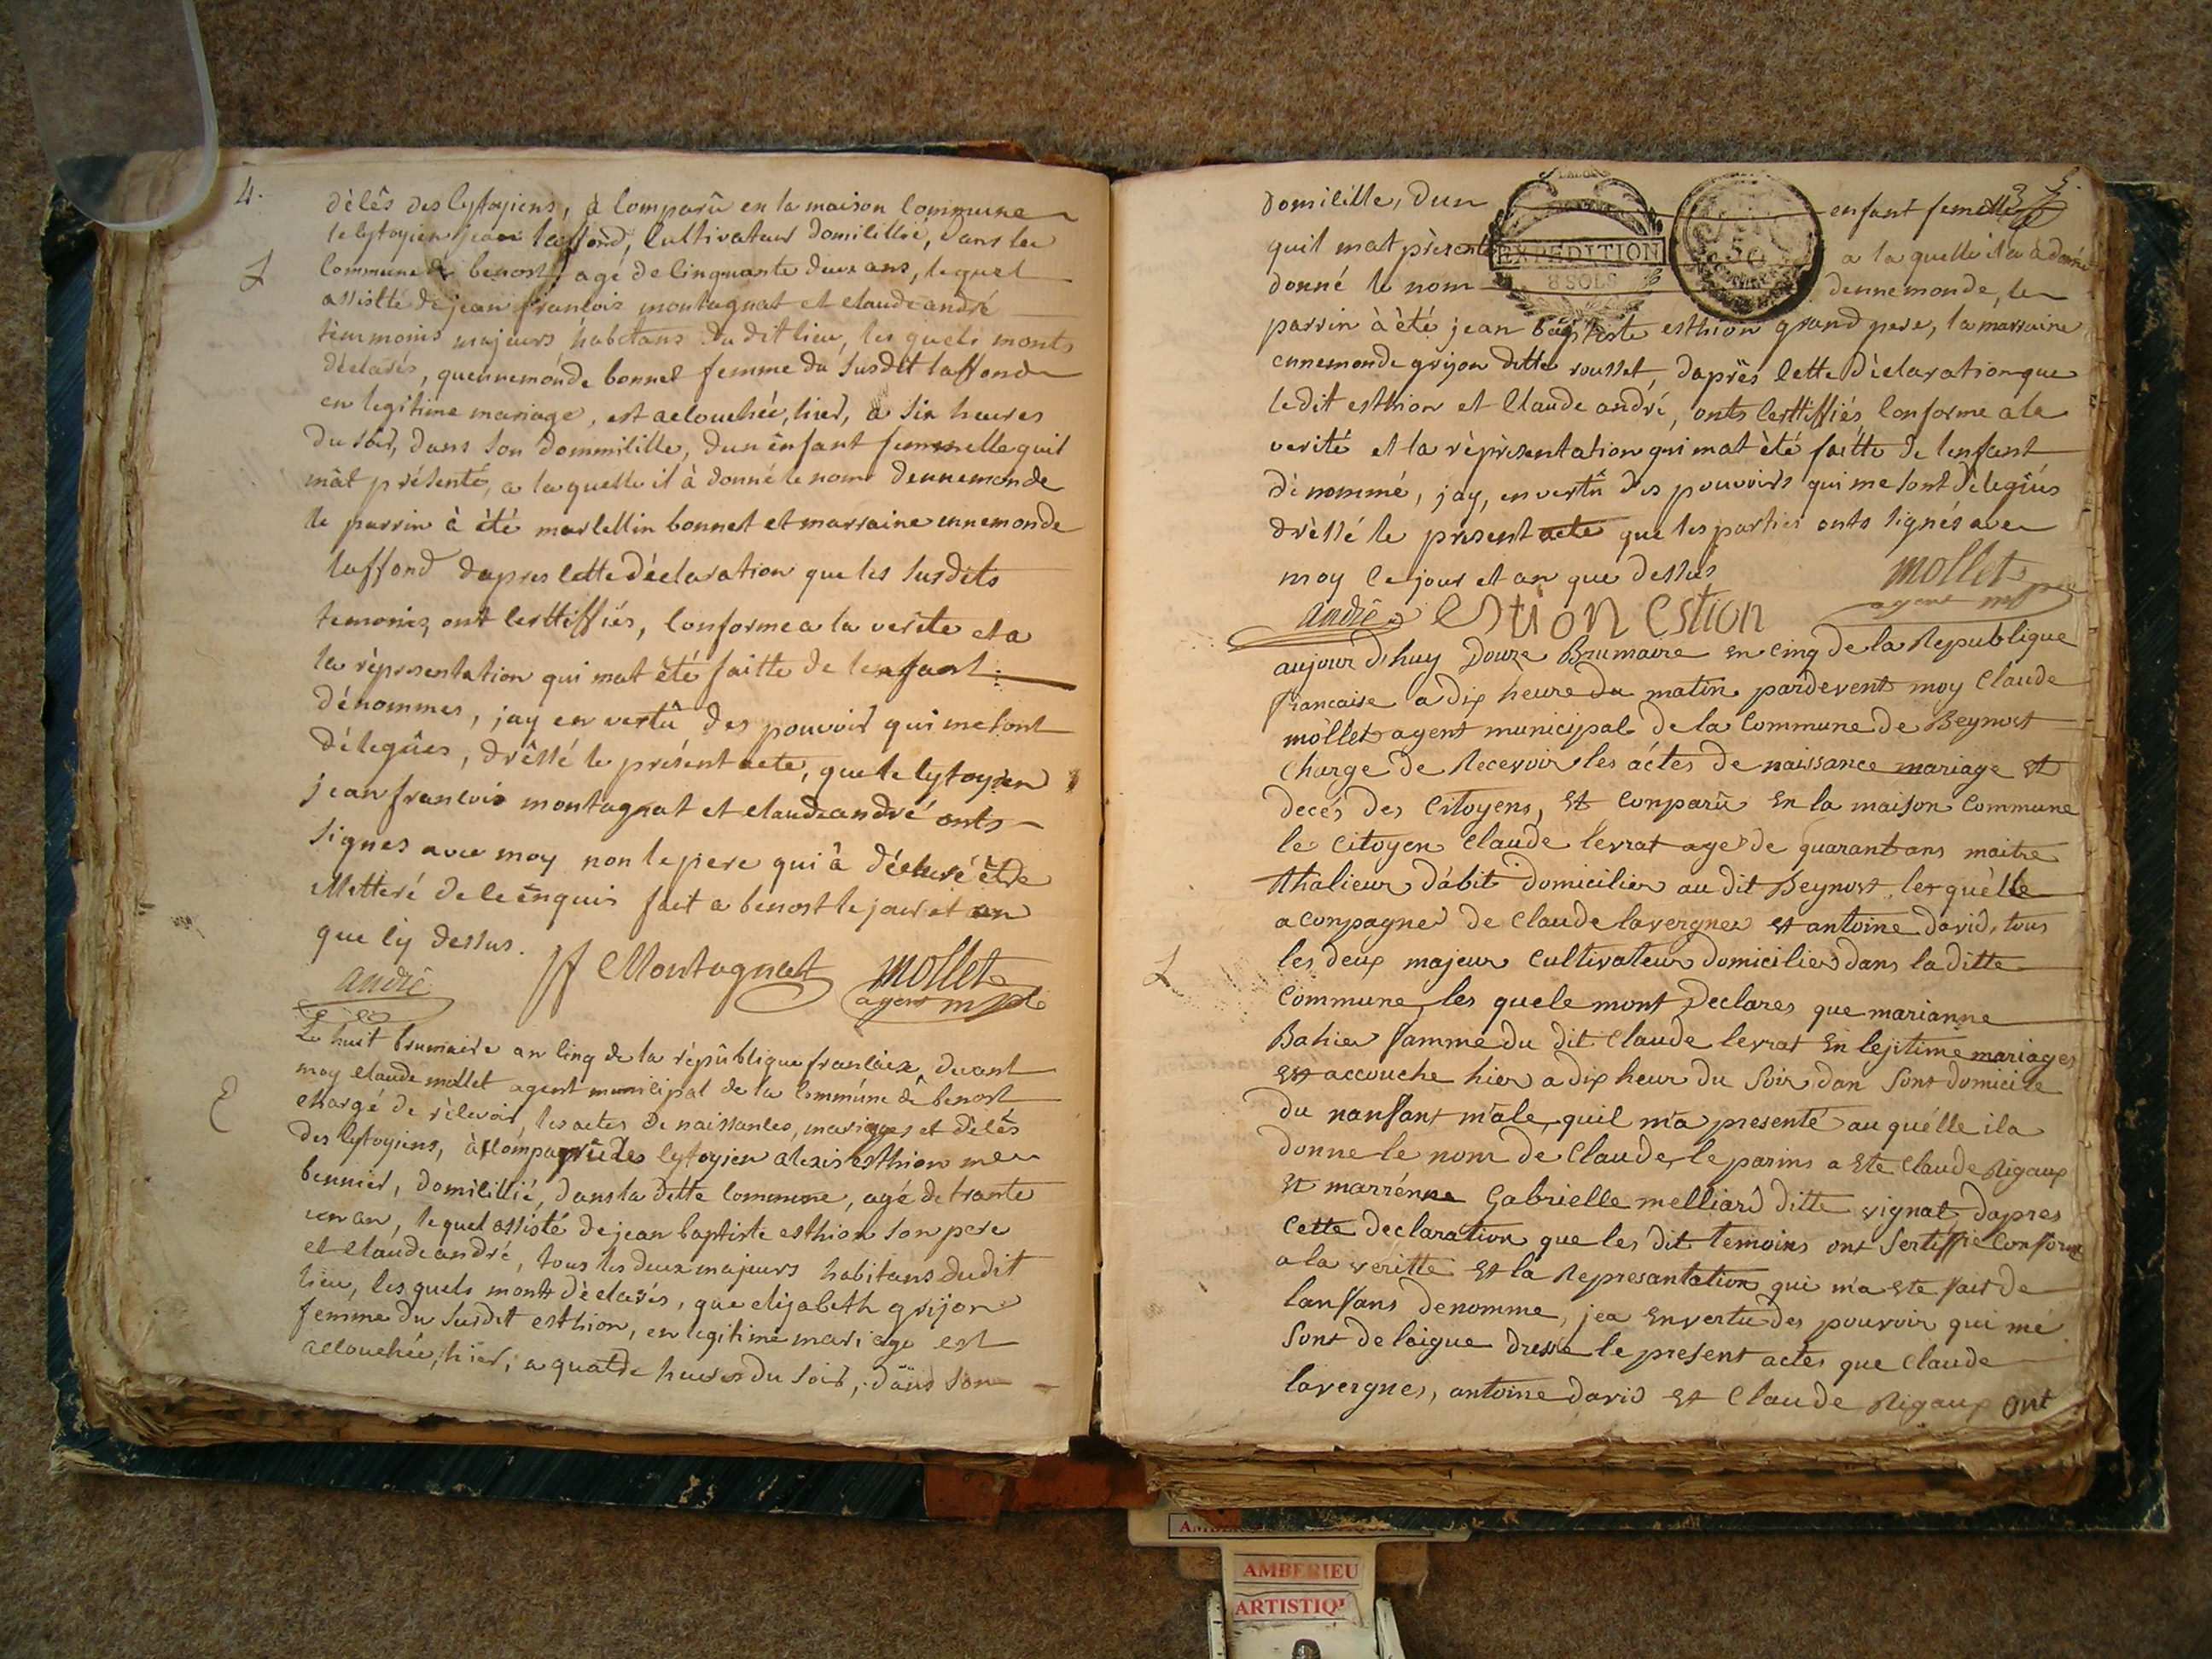 4.
dècês des cytoyiens, à comparû en la maison commune
le cytoyien jean laffond, cultivateur domicillié, dans la
commune de benost, agé de cinquante deux ans, lequel
assisté de jean francois montagnat et claude andré
temmoins majeurs habitans du dit lieu, les quels monts
déclarés, quennemônde bonnet femme du susdit laffond
en legitime mariage, est accouchée, hier, a six heures
du soir, dans son dommicille, dun enfant femmelle quil
mât présenté, a laquelle il à donné le nom dennemonde
le parrin à été marcellin bonnet et marraine ennemonde
laffond dapres cette déclaration que les susdits
temoins, ont certtiffiés, conforme a la verite et a
la rèprésentation qui mat été faitte de lenfant
dénommes, jay en vertû des pouvoir qui me sont
délegûes, drêssé le présent acte, que le cytoyien
jean francois montagnat et claude andré onts
signes avec moy non le pere qui à déclaré être
illetteré de ce enquis fait a benost le jour et an
que cy dessus.
andré JF Montagnat mollet
agent mple
L
Le huit brumaire an cinq de la rèpûblique francaise, devant
moy claude mollet agent municipal de la commúne de benost
chargé de rècevoir, les actes de naissances, mariages et dècês
des cytoyiens, à comparû le cytoyien alexis esthion me
bennier, domicillié, dans la dette commune, agé de trante
un an, lequel assisté de jean baptiste esthion son pere
et claude andré, tous les deux majeurs habitans dudit
lieu, les quels monts dèclarés, que elizabeth grijon
femme du susdit esthion, en legitime mariage est
accouchée, hier, a quatre heures du soir, dans son
E
5.
domicille, dun enfant femelle
quil mat présenté a la quelle il a à donné
donné le nom dennemonde, le
EXPEDITION
8 SOLS
50
parrin à été jean baptiste esthion grand pere, la marraine
ennemonde grijon ditte rousset, daprès cette dèclaration que
ledit esthion et Claude andré, onts certtiffiés conforme a la
verité et la rèprèsentation qui mat été faitte de lenfant
dènommé, jay, en vertû des pouvoirs qui me sont délegûés
drèssé le présent acte que les parties onts signés avec
moy le jour et an que dessus
mollet
agent mple
andré estion estion
aujour dhuy Douze Brumaire en cinq de la Republique
francaise a dix heure du matin pardevent moy Claude
mollet agent municipal de la Commune de Beynost
Charge de Recevoir les áctes de naissance mariage et
decés des Citoyens, et Conparû en la maison Commune
le Citoyen Claude levrat age de quarant ans maitre
thalieur dábit domicilier au dit Beynost, les quèlle
a conpagne de Claude lavergne et antoine david, tous
les deux majeur Cultivateur domicilier dans la ditte
Commune, les quele mont Declares que marianne
Bahier famme du dit Claude levrat en lejitime mariages
est accouche hier a dix heur du Soir dan Sont domicile
du nanfant mále, quil ma presenté au quélle il a
donne le nom de Claude, le parins a ete Claude Rigaux
et marrénne Gabrielle melliard ditte vignat dapres
Cette declaration que les dit temoins ont Sertiffie Conforme
a la véritte et la Represantation qui ma ete fait de
lanfans denomme, jea en vertu des pouvoir qui me
Sont deloigue dresse le present actes que Claude
lavergnes, antoine david et Claude Rigaux ont
L
AMBERIEU
ARTISTIQ